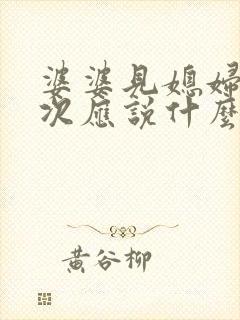 婆婆見媳婦
次應說什麼
黃谷柳